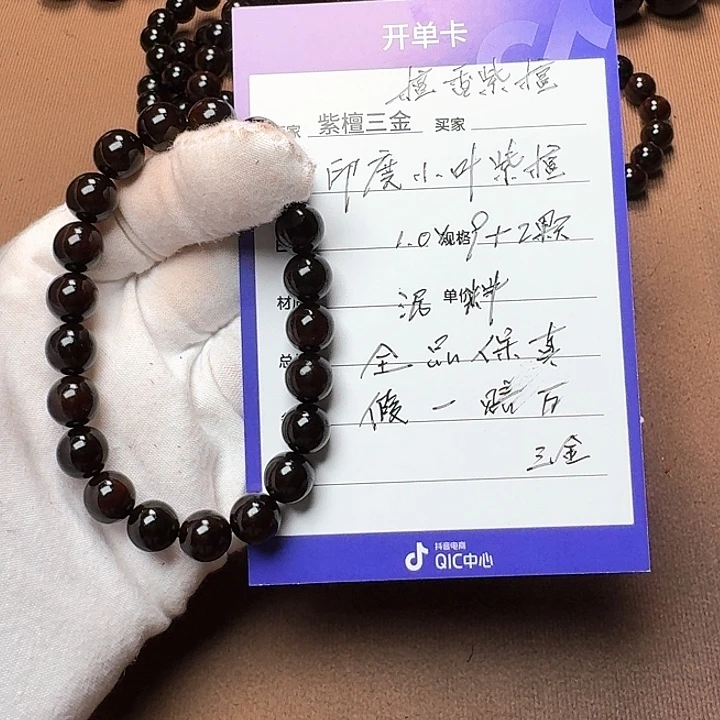 开单卡
檀香紫檀
家 紫檀三金 买家
印度小叶紫檀
1.0 规格 9+2颗
材 泥 单价 料
总 全品保真
假一赔百
三金
抖音电商
QIC中心